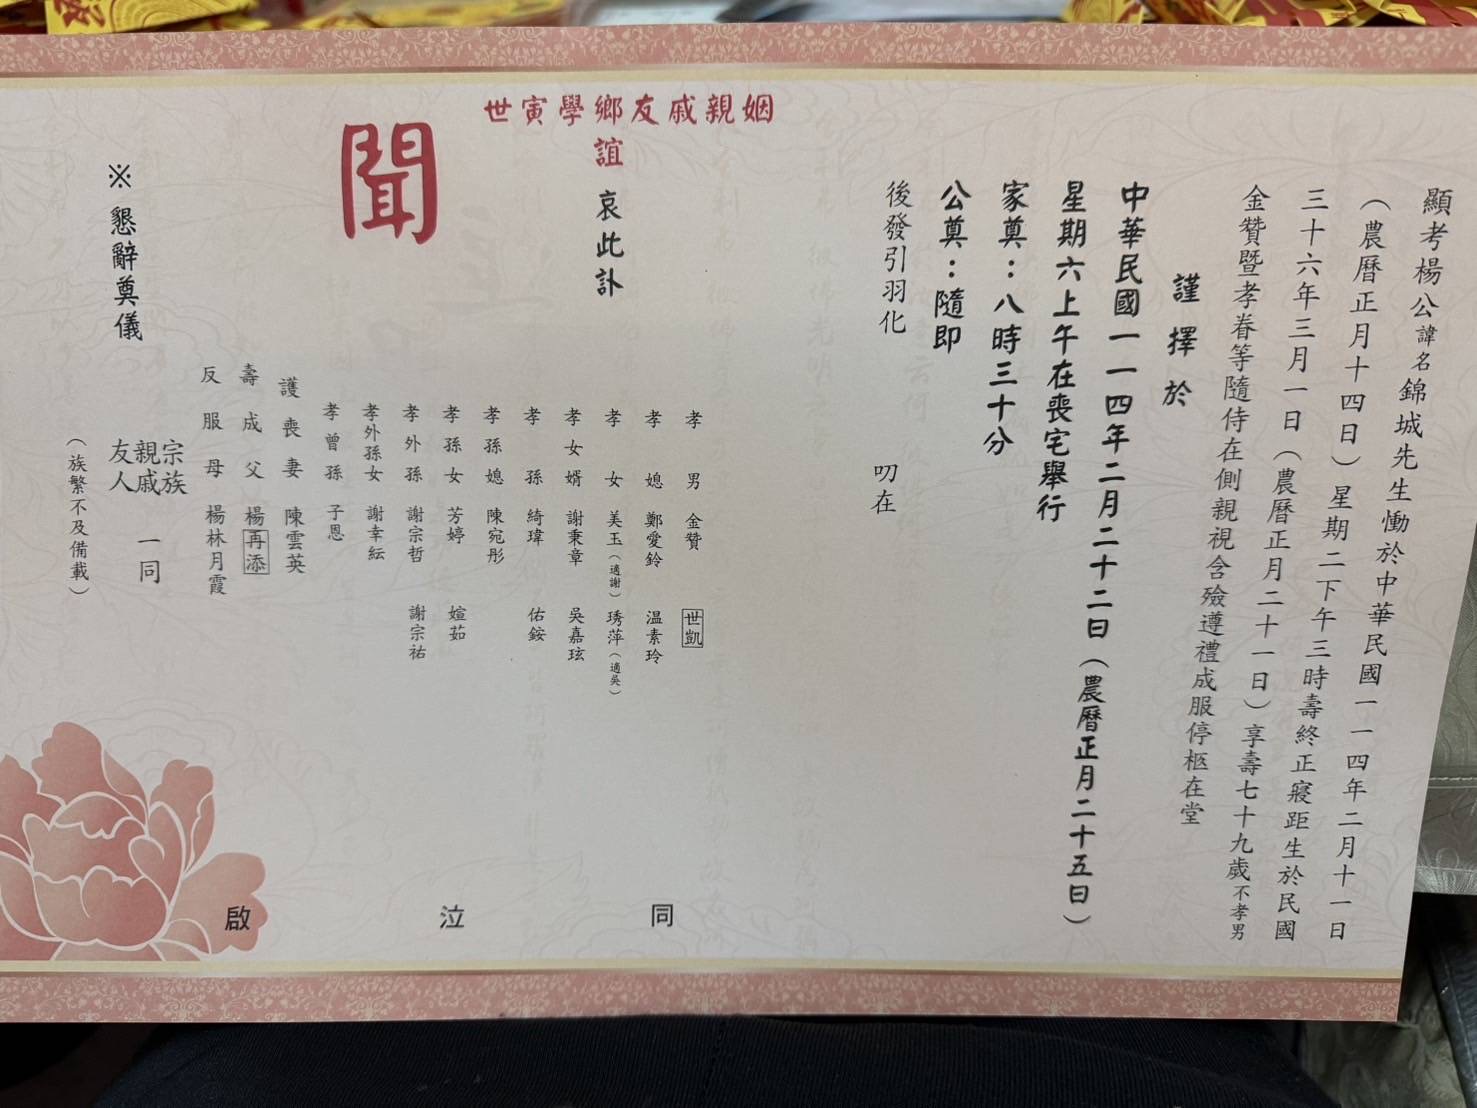 顯考楊公諱名錦城先生慟於中華民國一一四年二月十一日
（農曆正月十四日）星期二下午三時壽終正寢距生於民國
三十六年三月一日（農曆正月二十一日）享壽七十九歲不孝男
金贊暨孝眷等隨侍在側親視含殮遵禮成服停柩在堂
謹擇於
中華民國一一四年二月二十二日（農曆正月二十五日）
星期六上午在喪宅舉行
家奠：八時三十分
公奠：隨即
後發引羽化 叨在
姻親戚友鄉學寅世
誼 哀此訃
聞
孝男 金贊 世凱
孝媳 鄭愛鈴 温素玲
孝女 美玉（適謝） 琇萍（適吳）
孝女婿 謝秉章 吳嘉玹
孝孫 綺瑋 佑銨
孝孫媳 陳宛彤
孝孫女 芳婷 媗茹
孝外孫 謝宗哲 謝宗祐
孝外孫女 謝幸紜
孝曾孫 子恩
護喪妻 陳雲英
壽成父 楊再添
反服母 楊林月霞
同泣啟
宗族
親戚 一同
友人
（族繁不及備載）
※懇辭奠儀